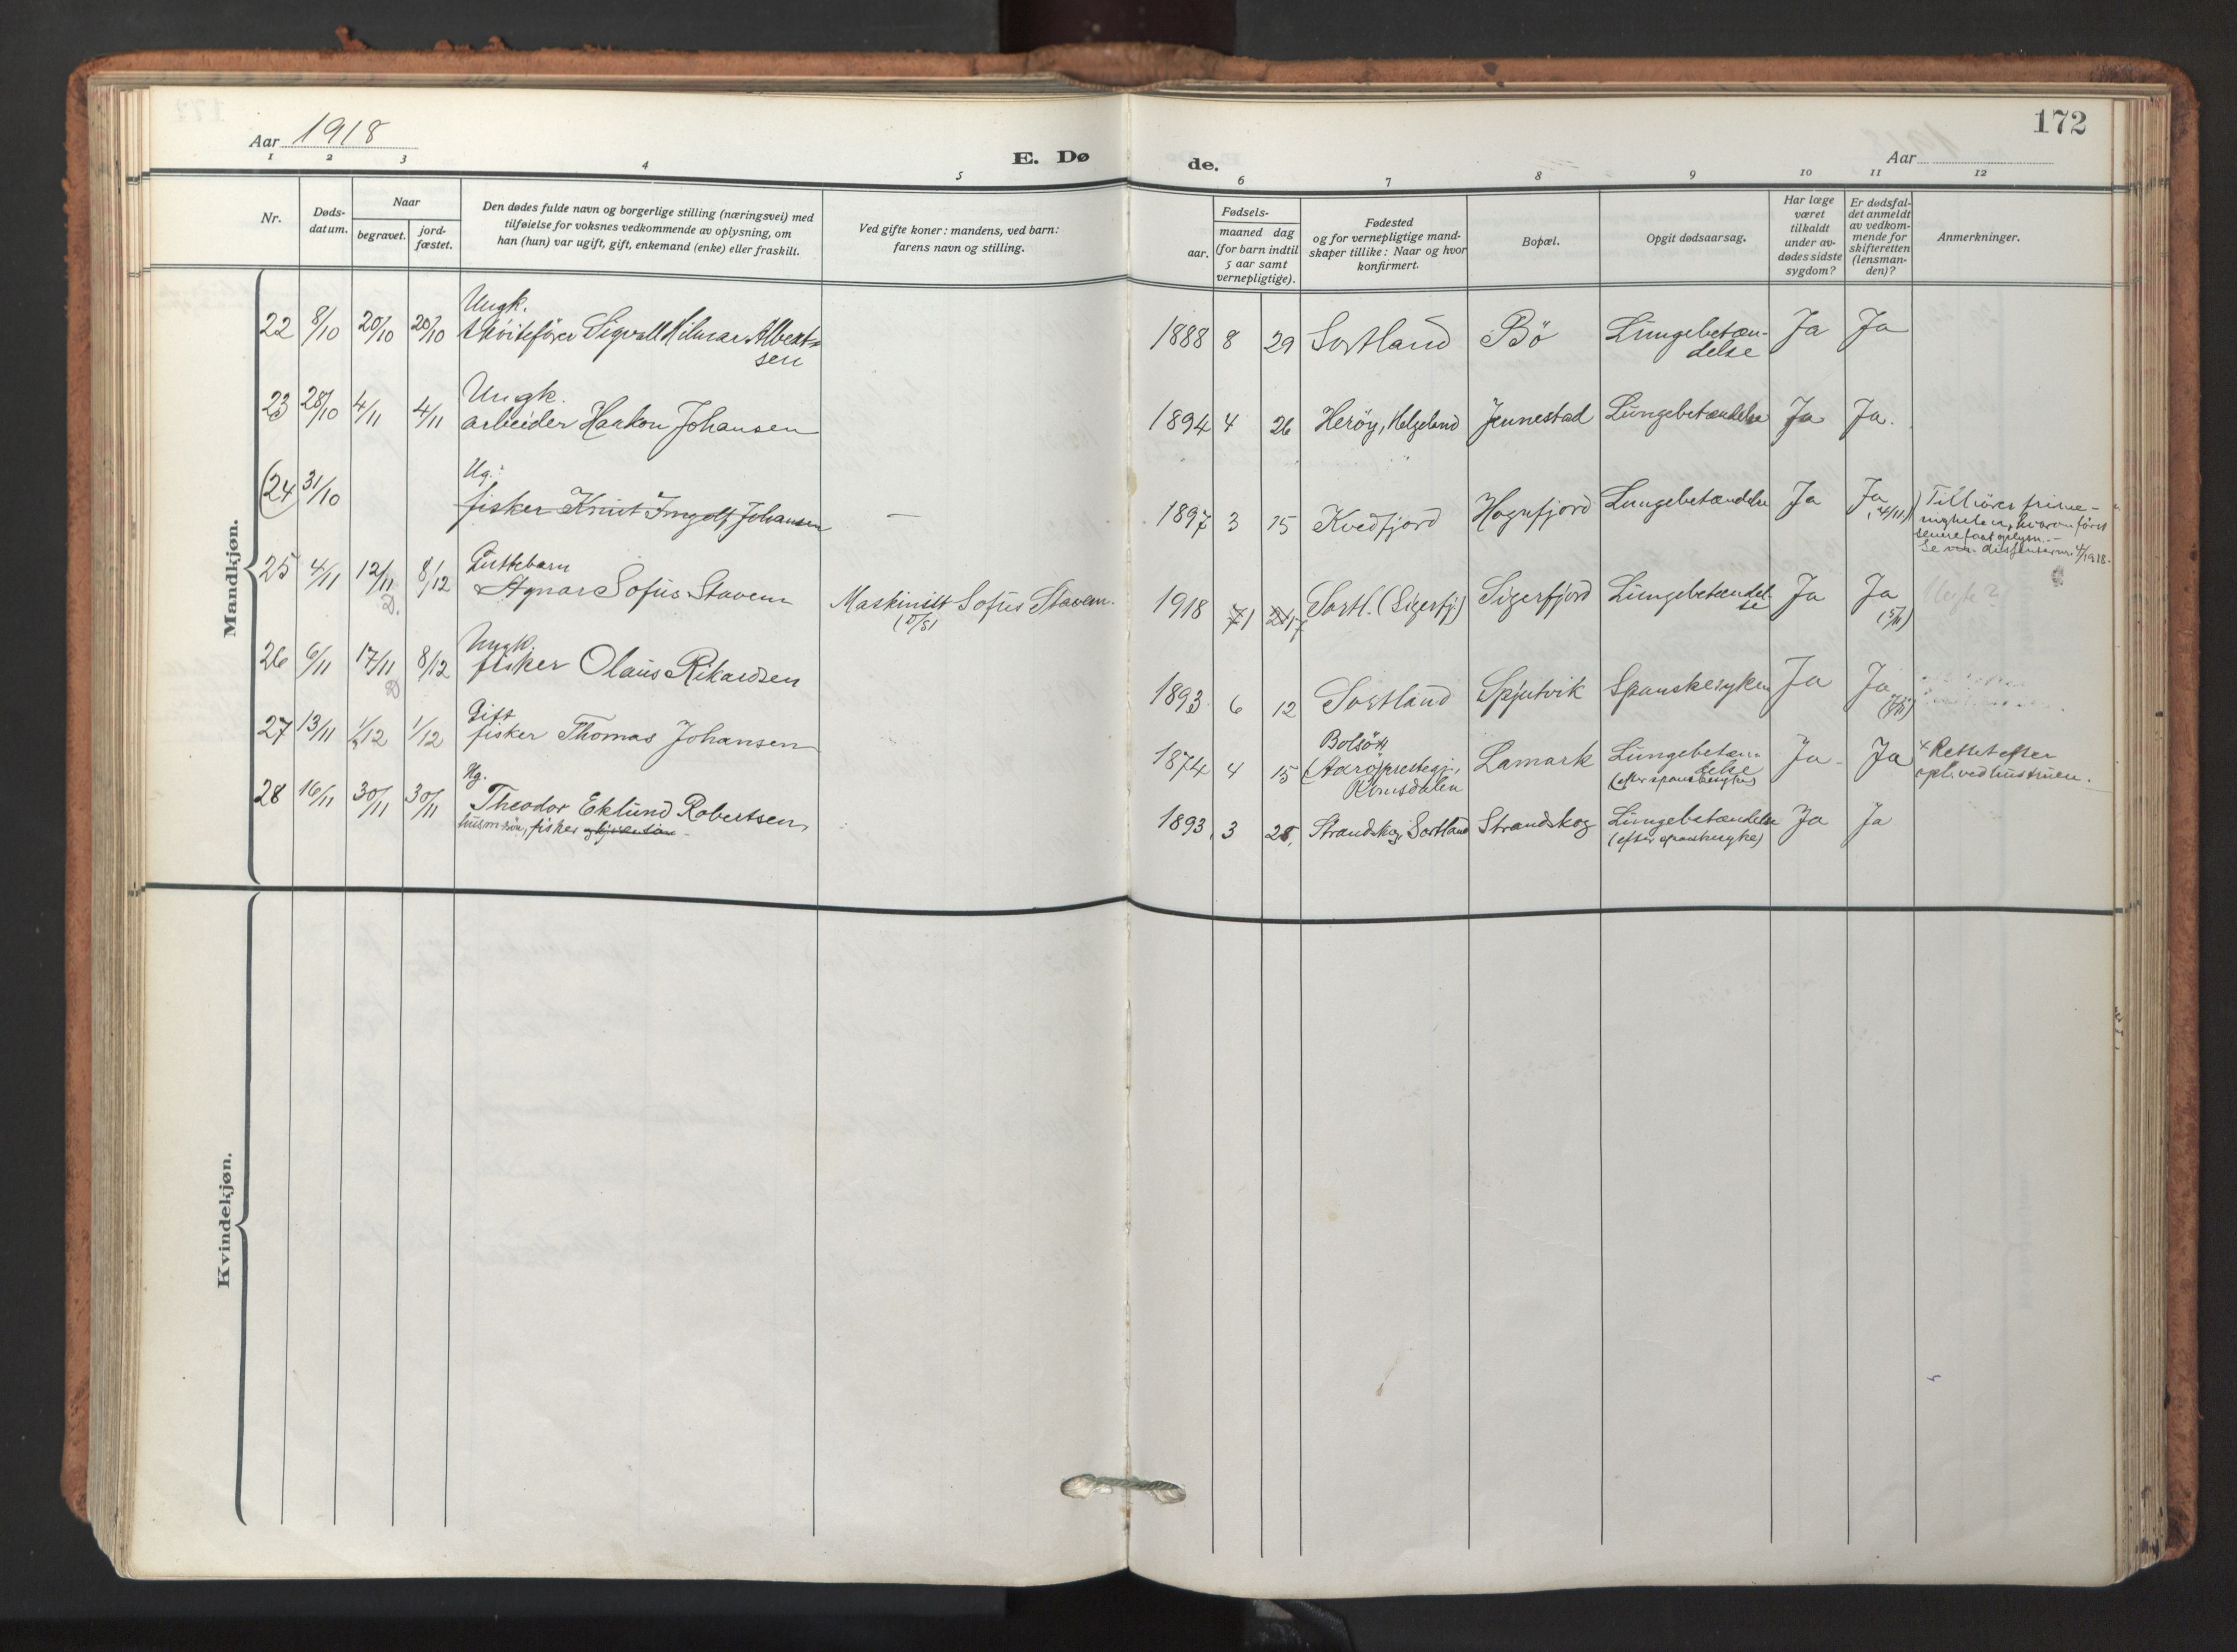 172
Aar 1918
E. Dø
de.
Aar
1 2 3 4 5 6 7 8 9 10 11 12
Nr.
Døds-
datum.
Naar
begravet.
jord-
fæstet.
Den dødes fulde navn og borgerlige stilling (næringsvei) med
tilføielse for voksnes vedkommende av oplysning, om
han (hun) var ugift, gift, enkemand (enke) eller fraskilt.
Ved gifte koner: mandens, ved barn:
farens navn og stilling.
Fødsels-
aar.
maaned dag
(for barn indtil
5 aar samt
vernepligtige).
Fødested
og for vernepligtige mand-
skaper tillike: Naar og hvor
konfirmert.
Bopæl.
Opgit dødsaarsag.
Har læge
været
tilkaldt
under av-
dødes sidste
sygdom?
Er dødsfal-
det anmeldt
av vedkom-
mende for
skifteretten
(lensman-
den)?
Anmerkninger.
Mandkjøn.
Ungk.
22 8/10 20/10 20/10 skøitefører Sigvall Hilmar Albert- 1888 8 29 Sortland Bø Lungebetæn- Ja Ja
sen delse
Ungk.
23 28/10 4/11 4/11 arbeider Haakon Johansen 1894 4 26 Herøy, Helgeland Jennestad Lungebetændelse Ja Ja.
Ug.
(24 31/10 fisker Knut Ingolf Johansen — 1897 3 15 Kvedfjord Hognfjord Lungebetændelse Ja Ja (4/11)
Tilhører frime-
nigheten, hvorom først
senere faat oplysn. –
Se dissenternr. 4/1918.
Guttebarn
25 4/11 12/11 8/12 Agnar Sofus Stavem Maskinist Sofus Stavem. 1918 7 1 21 17 Sortl. (Sigerfj.) Sigerfjord Lungebetændel- Ja Ja
D. se (5/11)
Ungk.
26 6/11 17/11 8/12 fisker Olaus Rikardsen 1893 6 12 Sortland Spjutvik Spanskesyken Ja Ja
D
Gift
27 13/11 1/12 1/12 fisker Thomas Johansen 1874 4 15 Bolsø
(Aarø) prestegj., Romsdalen Lamark Lungebetæn-
delse
(efter spanskesyke) Ja Ja × Rettet efter
opl. ved hustruen.
Ug.
28 16/11 30/11 30/11 Theodor Eklund Robertsen, 1893, 3 28, Strandskog Sortland Strandskog Lungebetændelse Ja Ja
husm.søn, fisker (efter spanskesyke)
Kvindekjøn.